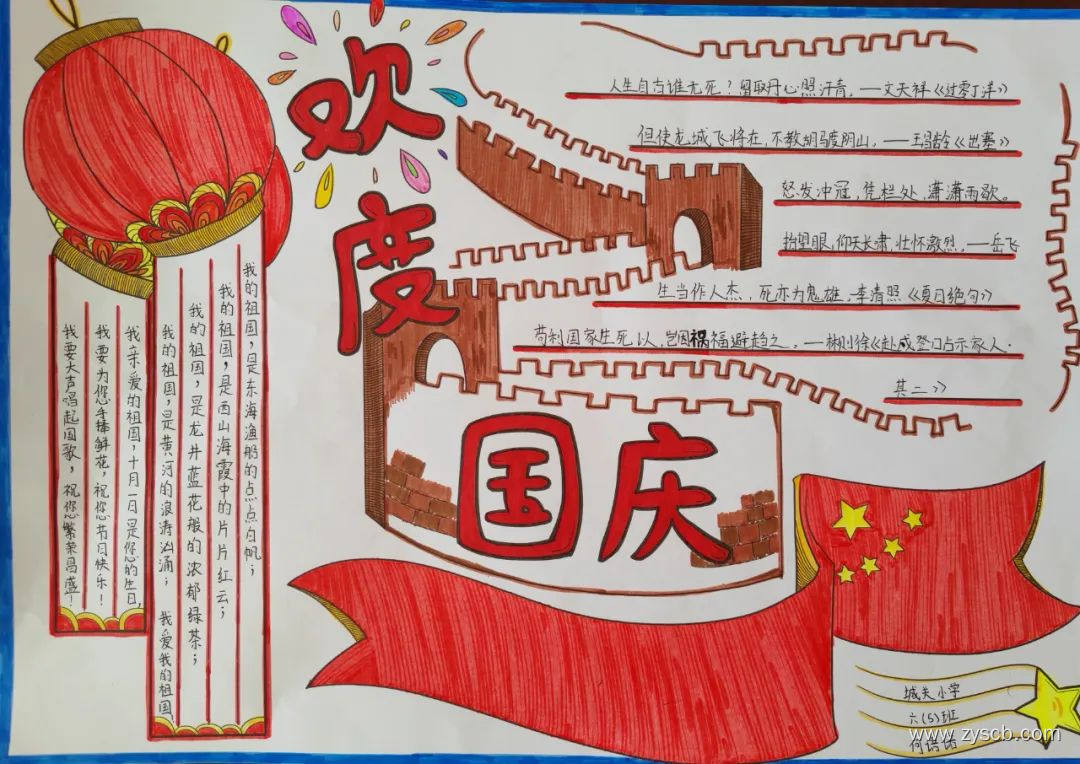 欢度
国庆
人生自古谁无死？留取丹心照汗青，——文天祥《过零丁洋》
但使龙城飞将在，不教胡马度阴山，——王昌龄《出塞》
怒发冲冠，凭栏处，潇潇雨歇。
抬望眼，仰天长肃，壮怀激烈，——岳飞
生当作人杰，死亦为鬼雄，李清照《夏日绝句》
苟利国家生死以，岂因祸福避趋之，——林则徐《赴戍登口占示家人·
其二》
我的祖国，是东海渔船的点点白帆；
我的祖国，是西山海霞中的片片红云；
我的祖国，是龙井蓝花般的浓郁绿茶；
我的祖国，是黄河的浪涛汹涌； 我爱我的祖国
我亲爱的祖国，十月一日是您的生日，
我要为您手捧鲜花，祝您节日快乐！
我要大声唱起国歌，祝您繁荣昌盛！
城关小学
六(5)班
www.zyscb.com